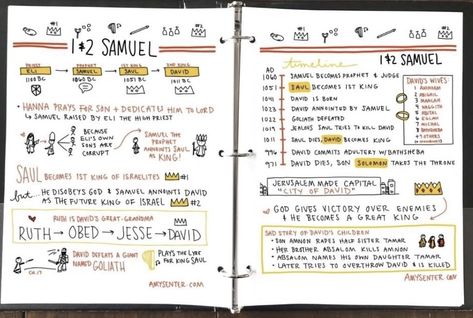 #1
#2
1 & 2 SAMUEL
PRIEST
ELI
1100 BC
PROPHET
SAMUEL
1060 BC
1ST KING
SAUL
1051 BC
2ND KING
DAVID
1011 BC
• HANNA PRAYS FOR SON + DEDICATES HIM TO LORD
↳ SAMUEL RAISED BY ELI THE HIGH PRIEST
BECAUSE
ELI'S OWN
SONS ARE
CORRUPT
SAMUEL THE
PROPHET
ANNOINTS SAUL
AS KING!
SAUL BECOMES 1ST KING OF ISRAELITES #1
but... HE DISOBEYS GOD & SAMUEL ANNOINTS DAVID
AS THE FUTURE KING OF ISRAEL #2
RUTH IS DAVID'S GREAT-GRANDMA
RUTH → OBED → JESSE → DAVID
DAVID DEFEATS A GIANT
NAMED GOLIATH
PLAYS THE LYRE
FOR KING SAUL
AMYSENTER.COM
#1
#2
timeline
1 & 2 SAMUEL
AD
1060 SAMUEL BECOMES PROPHET & JUDGE
1051 SAUL BECOMES 1ST KING
1040 DAVID IS BORN
1023 DAVID ANNOINTED BY SAMUEL
1022 GOLIATH DEFEATED
1019 JEALOUS SAUL TRIES TO KILL DAVID
1011 SAUL DIES, DAVID BECOMES KING
996 DAVID COMMITS ADULTERY W/ BATHSHEBA
971 DAVID DIES, SON SOLOMON TAKES THE THRONE
DAVID'S WIVES:
ABIGAIL
MAACAH
HAGGITH
ABITAL
EGLAH
MICHAL
BATHSHEBA
JERUSALEM MADE CAPITAL
"CITY OF DAVID"
GOD GIVES VICTORY OVER ENEMIES
& HE BECOMES A GREAT KING
SAD STORY OF DAVID'S CHILDREN
• SON AMNON RAPES HALF SISTER TAMAR
• HER BROTHER ABSALOM KILLS AMNON
• ABSALOM NAMES HIS OWN DAUGHTER TAMAR
• LATER TRIES TO OVERTHROW DAVID & IS KILLED
AMYSENTER.COM